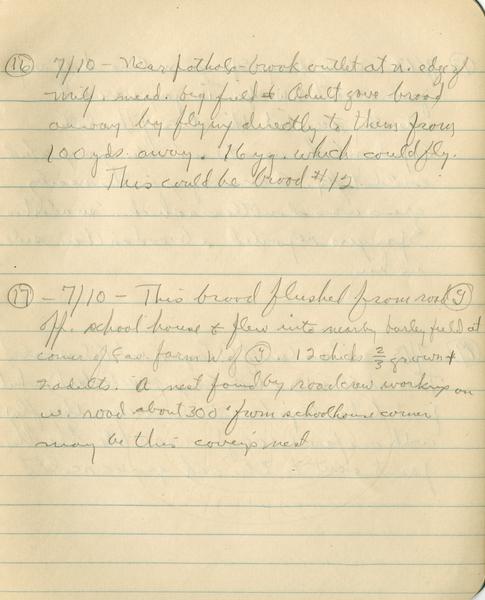 (16) 7/10 - Near pothole-brook outlet at n. edge of
Milf. mead. big field & Adult gave brood
away by flying directly to them from
100 yds. away. 16 yg. which could fly.
This could be brood #12
(17) - 7/10 - This brood flushed from road
opp. school house & flew into nearby barley field at
corner of Gav. farm W of 12 chicks 2/3 grown &
2 adults. A nest found by roadcrew working on
w. road about 300' from schoolhouse corner
may be this covey's nest